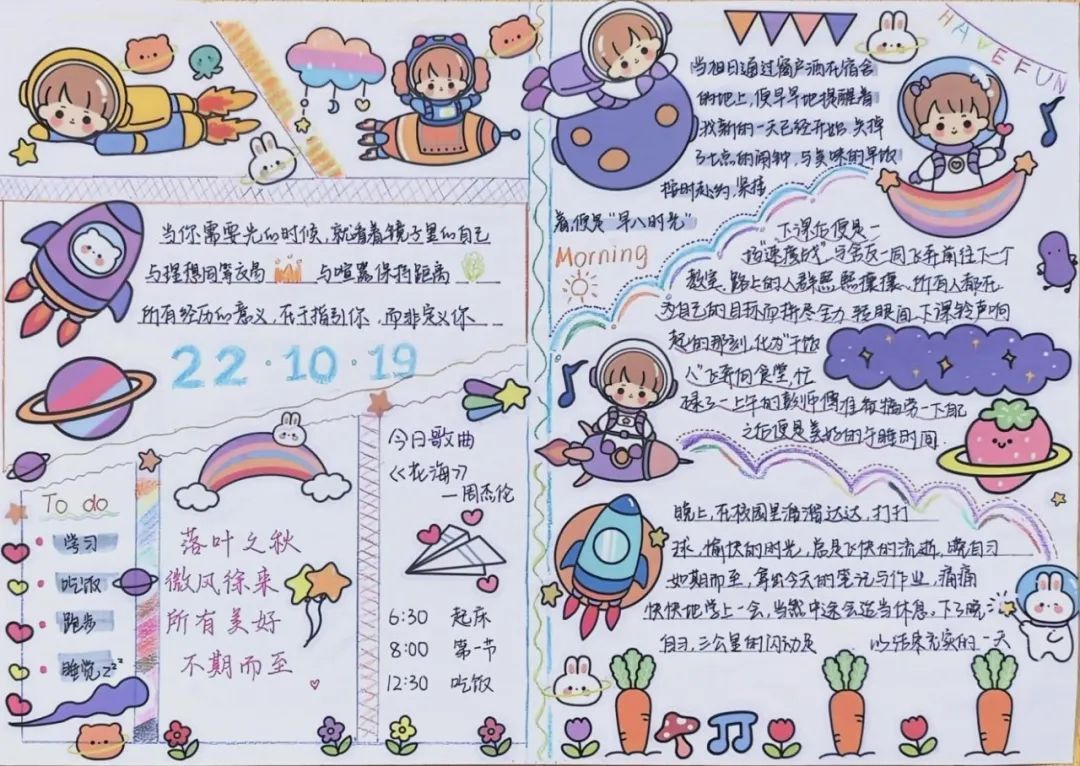 当你需要光的时候,就看着镜子里的自己
与理想同等交易 与喧嚣保持距离
所有经历的意义,在于指引你,而非定义你
22·10·19
To do
学习
吃饭
跑步
睡觉zzz
落叶之秋
微风徐来
所有美好
不期而至
今日歌曲
《花海》
—周杰伦
6:30 起床
8:00 第一节
12:30 吃饭
HAVE FUN
当旭日通过窗户洒在宿舍
的地上,便早早地提醒着
我新的一天已经开始,关掉
了七点的闹钟,与美味的早饭
按时赴约,紧接
着,便是"早八时光"
Morning
下课后便是一
场"速度战",与舍友一同飞奔前往下一个
教室,路上的人群熙熙攘攘,所有人都在
为自己的目标而拼尽全力,转眼间,下课铃声响
起的那刻,化为"干饭
人"飞奔向食堂,忙
碌了一上午的教师得准备犒劳一下自己
之后便是美好的午睡时间.
晚上,在校园里溜溜达达,打打
球,愉快的时光,总是飞快的流逝,晚自习
如期而至,拿出今天的笔记与作业,痛痛
快快地学上一会,当然中途会适当休息,下了晚
自习,三公里的闪动是 以结束充实的一天